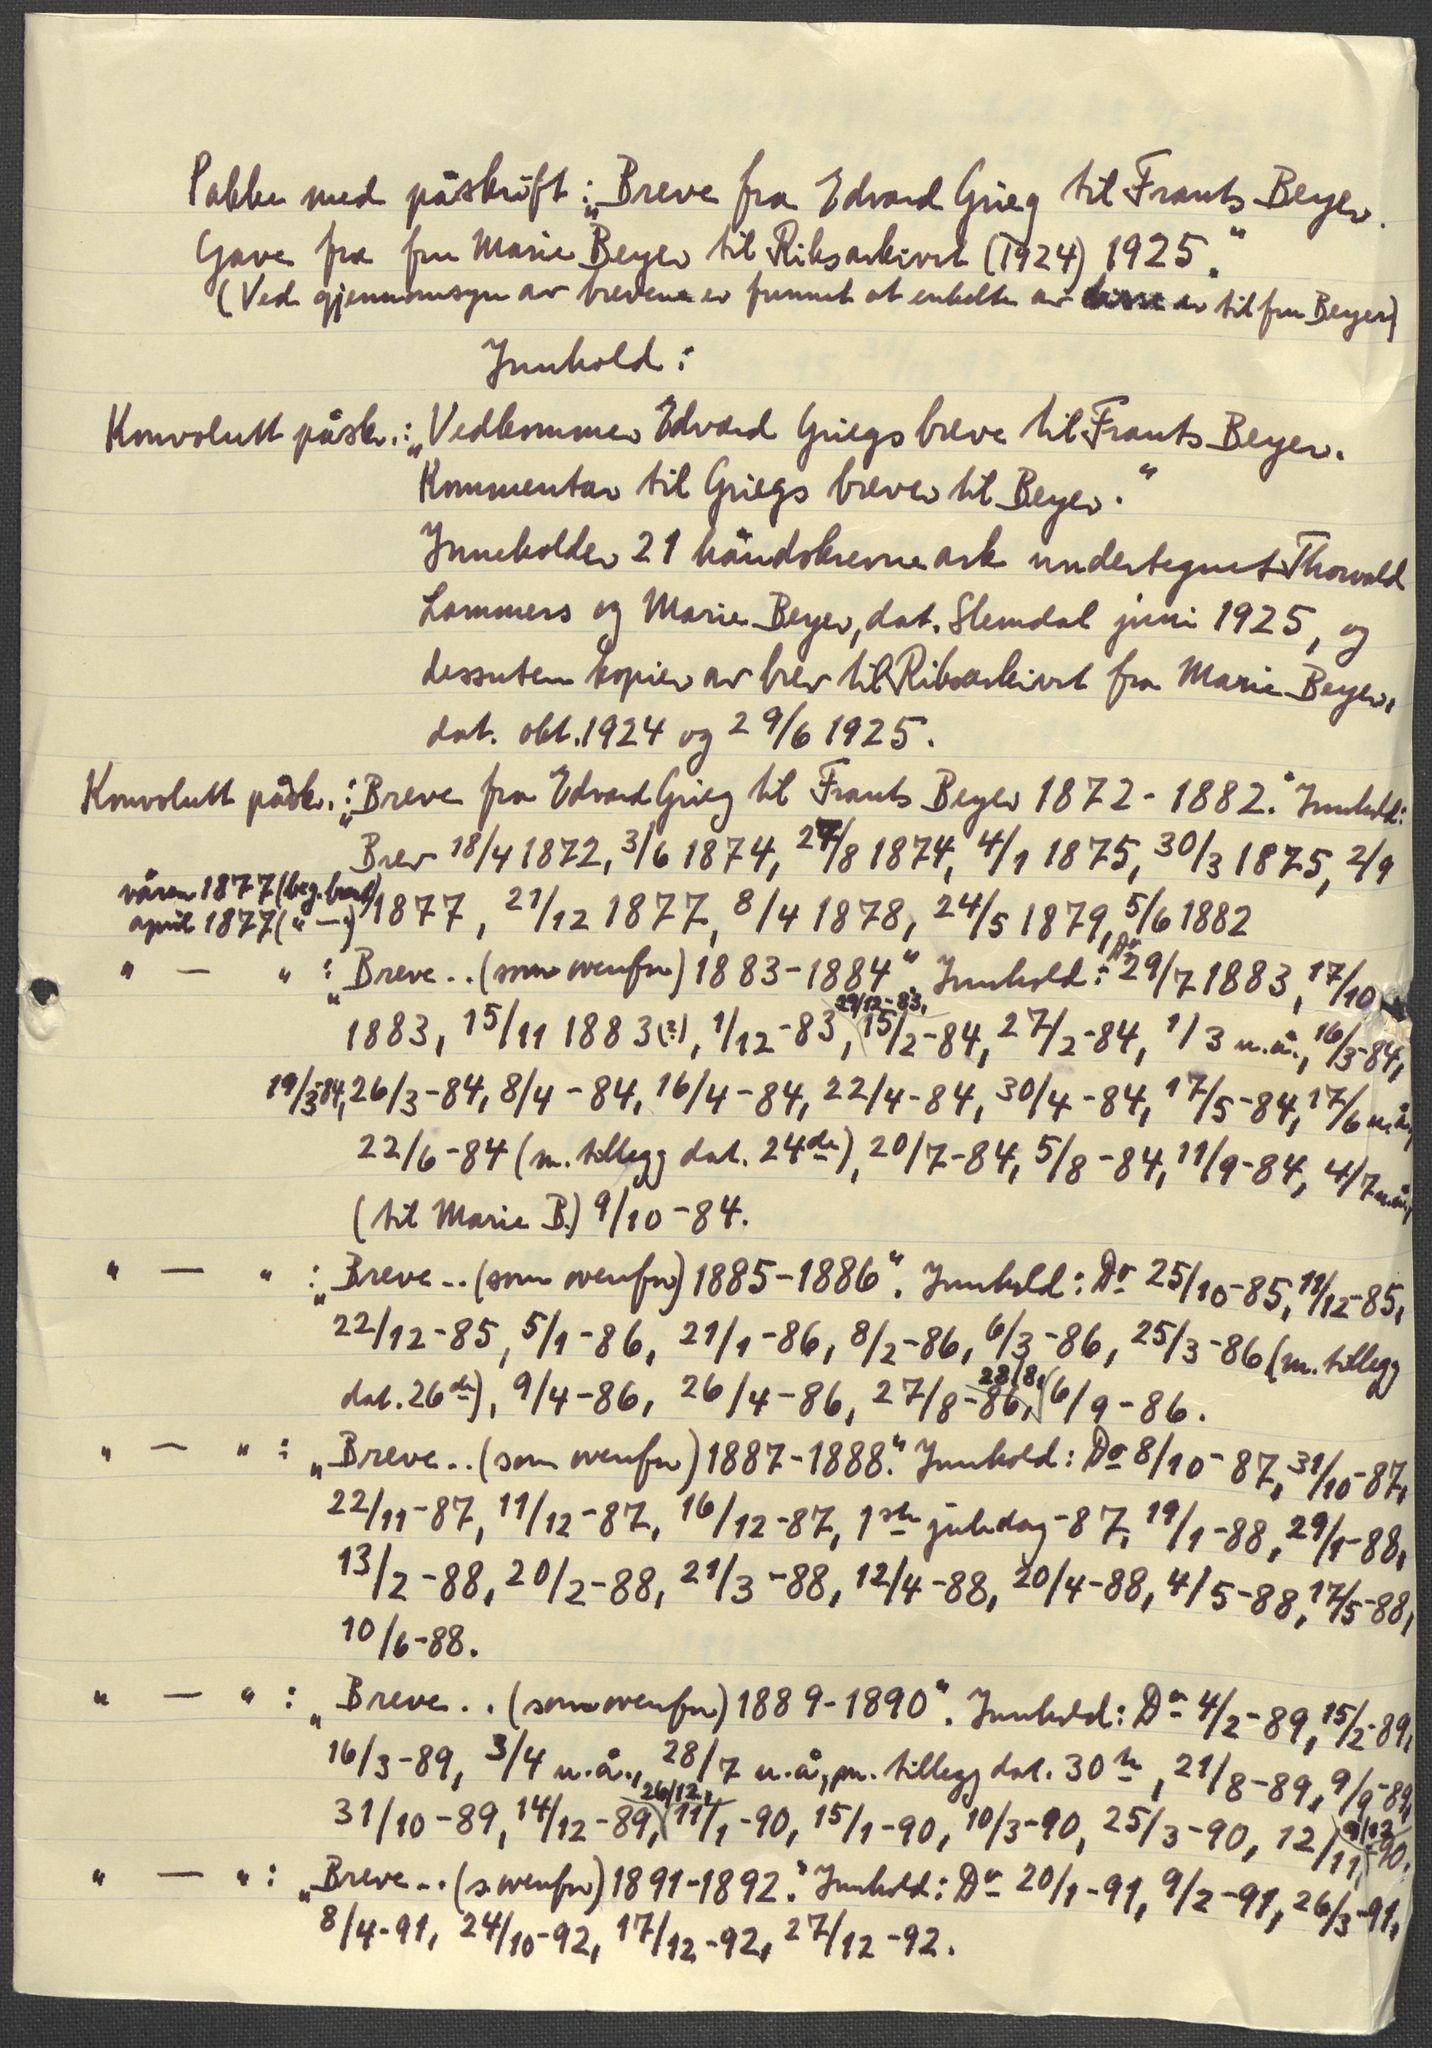 Pakke med påskrift: „Breve fra Edvard Grieg til Frants Beyer.
Gave fra fru Marie Beyer til Riksarkivet (1924) 1925."
(Ved gjennomsyn av brevene er funnet at enkelte av disse er til fru Beyer)
Innhold:
Konvolutt påskr.: „Vedkommer Edvard Griegs breve til Frants Beyer.
Kommentar til Griegs brever til Beyer."
Inneholder 21 håndskrevne ark undertegnet Thorvald
Lammers og Marie Beyer, dat. Slemdal juni 1925, og
dessuten kopier av brev til Riksarkivet fra Marie Beyer,
dat. okt. 1924 og 29/6 1925.
Konvolutt påskr.: „Breve fra Edvard Grieg til Frants Beyer 1872-1882." Innhold:
Brev 18/4 1872, 3/6 1874, 27/8 1874, 4/1 1875, 30/3 1875, 2/9
våren 1877 (beg. brev)
april 1877 (" — ) 1877, 21/12 1877, 8/4 1878, 24/5 1879, 5/6 1882
" — " : „Breve.. (som ovenfor) 1883-1884". Innhold: Do 29/7 1883, 17/10
1883, 15/11 1883(?), 1/12-83, 29/12-83, 15/2-84, 27/2-84, 1/3 u.å., 16/3-84,
19/3-84, 26/3-84, 8/4-84, 16/4-84, 22/4-84, 30/4-84, 17/5-84, 17/6 u.å.,
22/6-84 (m. tillegg dat. 24de), 20/7-84, 5/8-84, 11/9-84, 4/7 u.å.,
(til Marie B.) 9/10-84.
" — " : „Breve.. (som ovenfor) 1885-1886". Innhold: Do 25/10-85, 11/12-85,
22/12-85, 5/1-86, 21/1-86, 8/2-86, 6/3-86, 25/3-86 (m. tillegg
dat. 26de), 9/4-86, 26/4-86, 27/8-86, 28/8, 6/9-86.
" — " : „Breve.. (som ovenfor) 1887-1888." Innhold: Do 8/10-87, 31/10-87,
22/11-87, 11/12-87, 16/12-87, 1ste juledag-87, 19/1-88, 29/1-88,
13/2-88, 20/2-88, 21/3-88, 12/4-88, 20/4-88, 4/5-88, 17/5-88,
10/6-88.
" — " : „Breve.. (som ovenfor) 1889-1890". Innhold: Do 4/2-89, 15/2-89,
16/3-89, 3/4 u.å., 28/7 u.å., m. tillegg dat. 30te, 21/8-89, 9/9-89,
31/10-89, 14/12-89, 26/12, 11/1-90, 15/1-90, 10/3-90, 25/3-90, 12/11, 9/12-90.
" — " : „Breve.. (s. ovenfor) 1891-1892." Innhold: Do 20/1-91, 9/2-91, 26/3-91,
8/4-91, 24/10-92, 17/12-92, 27/12-92.